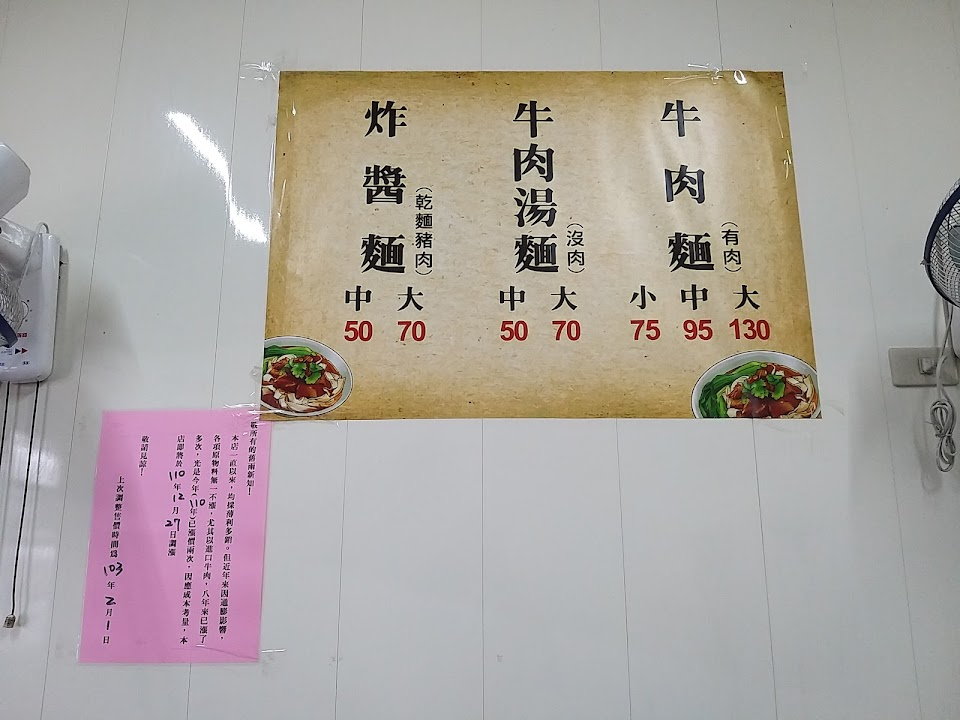 牛肉麵
(有肉)
小 中 大
75 95 130
牛肉湯麵
(沒肉)
中 大
50 70
炸醬麵
(乾麵豬肉)
中 大
50 70
敬所有的舊雨新知！
本店一直以來，均採薄利多銷。但近年來因通膨影響，
各項原物料無一不漲，尤其以進口牛肉，八年來已漲了
多次，光是今年(110年)已漲價兩次，因應成本考量，本
店即將於110年12月27日調漲
敬請見諒！
上次調整售價時間為103年2月1日